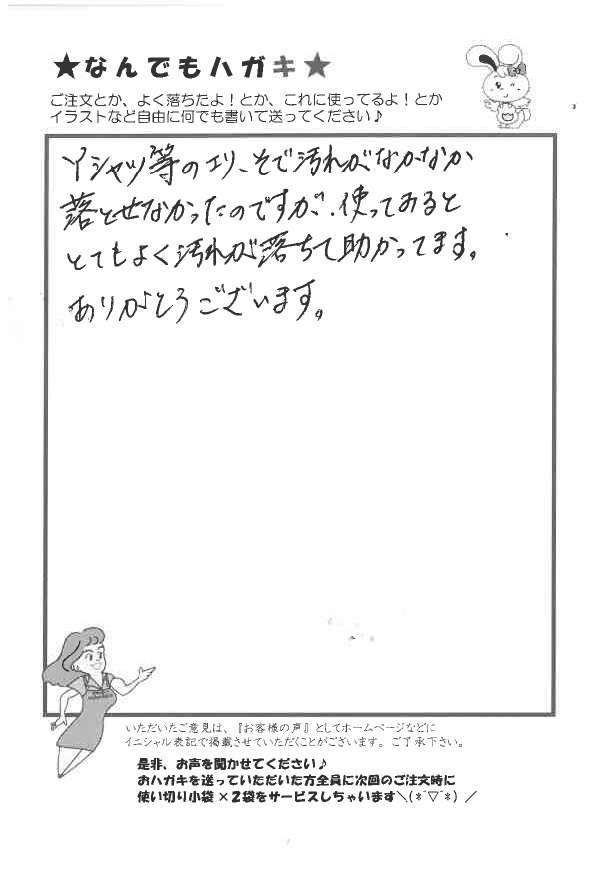 ★なんでもハガキ★
ご注文とか、よく落ちたよ！とか、これに使ってるよ！とか
イラストなど自由に何でも書いて送ってください♪
Yシャツ等のエリ、そで汚れがなかなか
落とせなかったのですが、使ってみると
とてもよく汚れが落ちて助かってます。
ありがとうございます。
いただいたご意見は、『お客様の声』としてホームページなどに
イニシャル表記で掲載させていただくことがございます。ご了承下さい。
是非、お声を聞かせてください♪
おハガキを送っていただいた方全員に次回のご注文時に
使い切り小袋×2袋をサービスしちゃいます＼(*´▽`*)／